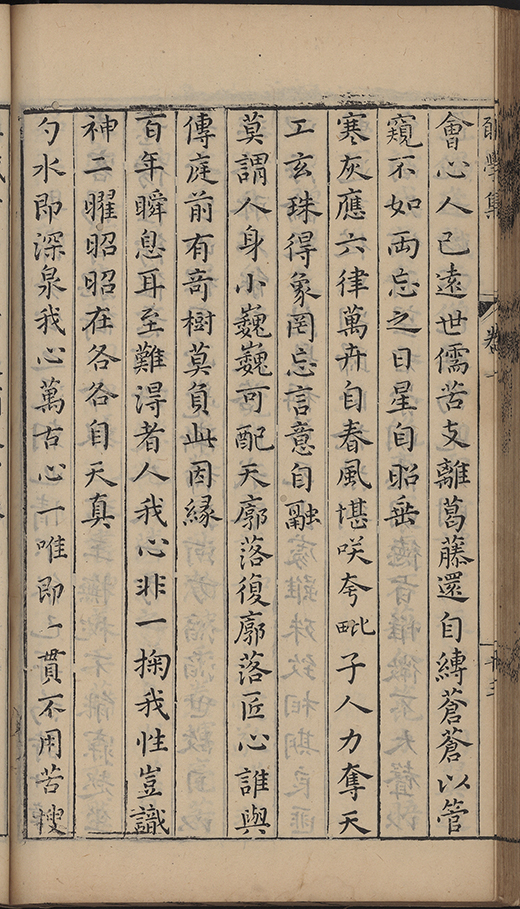 會心人已遠世儒苦支離葛藤還自縛蒼蒼以管
窺不如兩忘之日星自昭垂
寒灰應六律萬卉自春風堪咲夸毗子人力奪天
工玄珠得象罔忘言意自融
莫謂人身小巍巍可配天廓落復廓落匠心誰與
傳庭前有竒樹莫負此因緣
百年瞬息耳至難得者人我心非一掬我性豈識
神二曜昭昭在各各自天真
勺水即深泉我心萬古心一唯即一貫不用苦搜